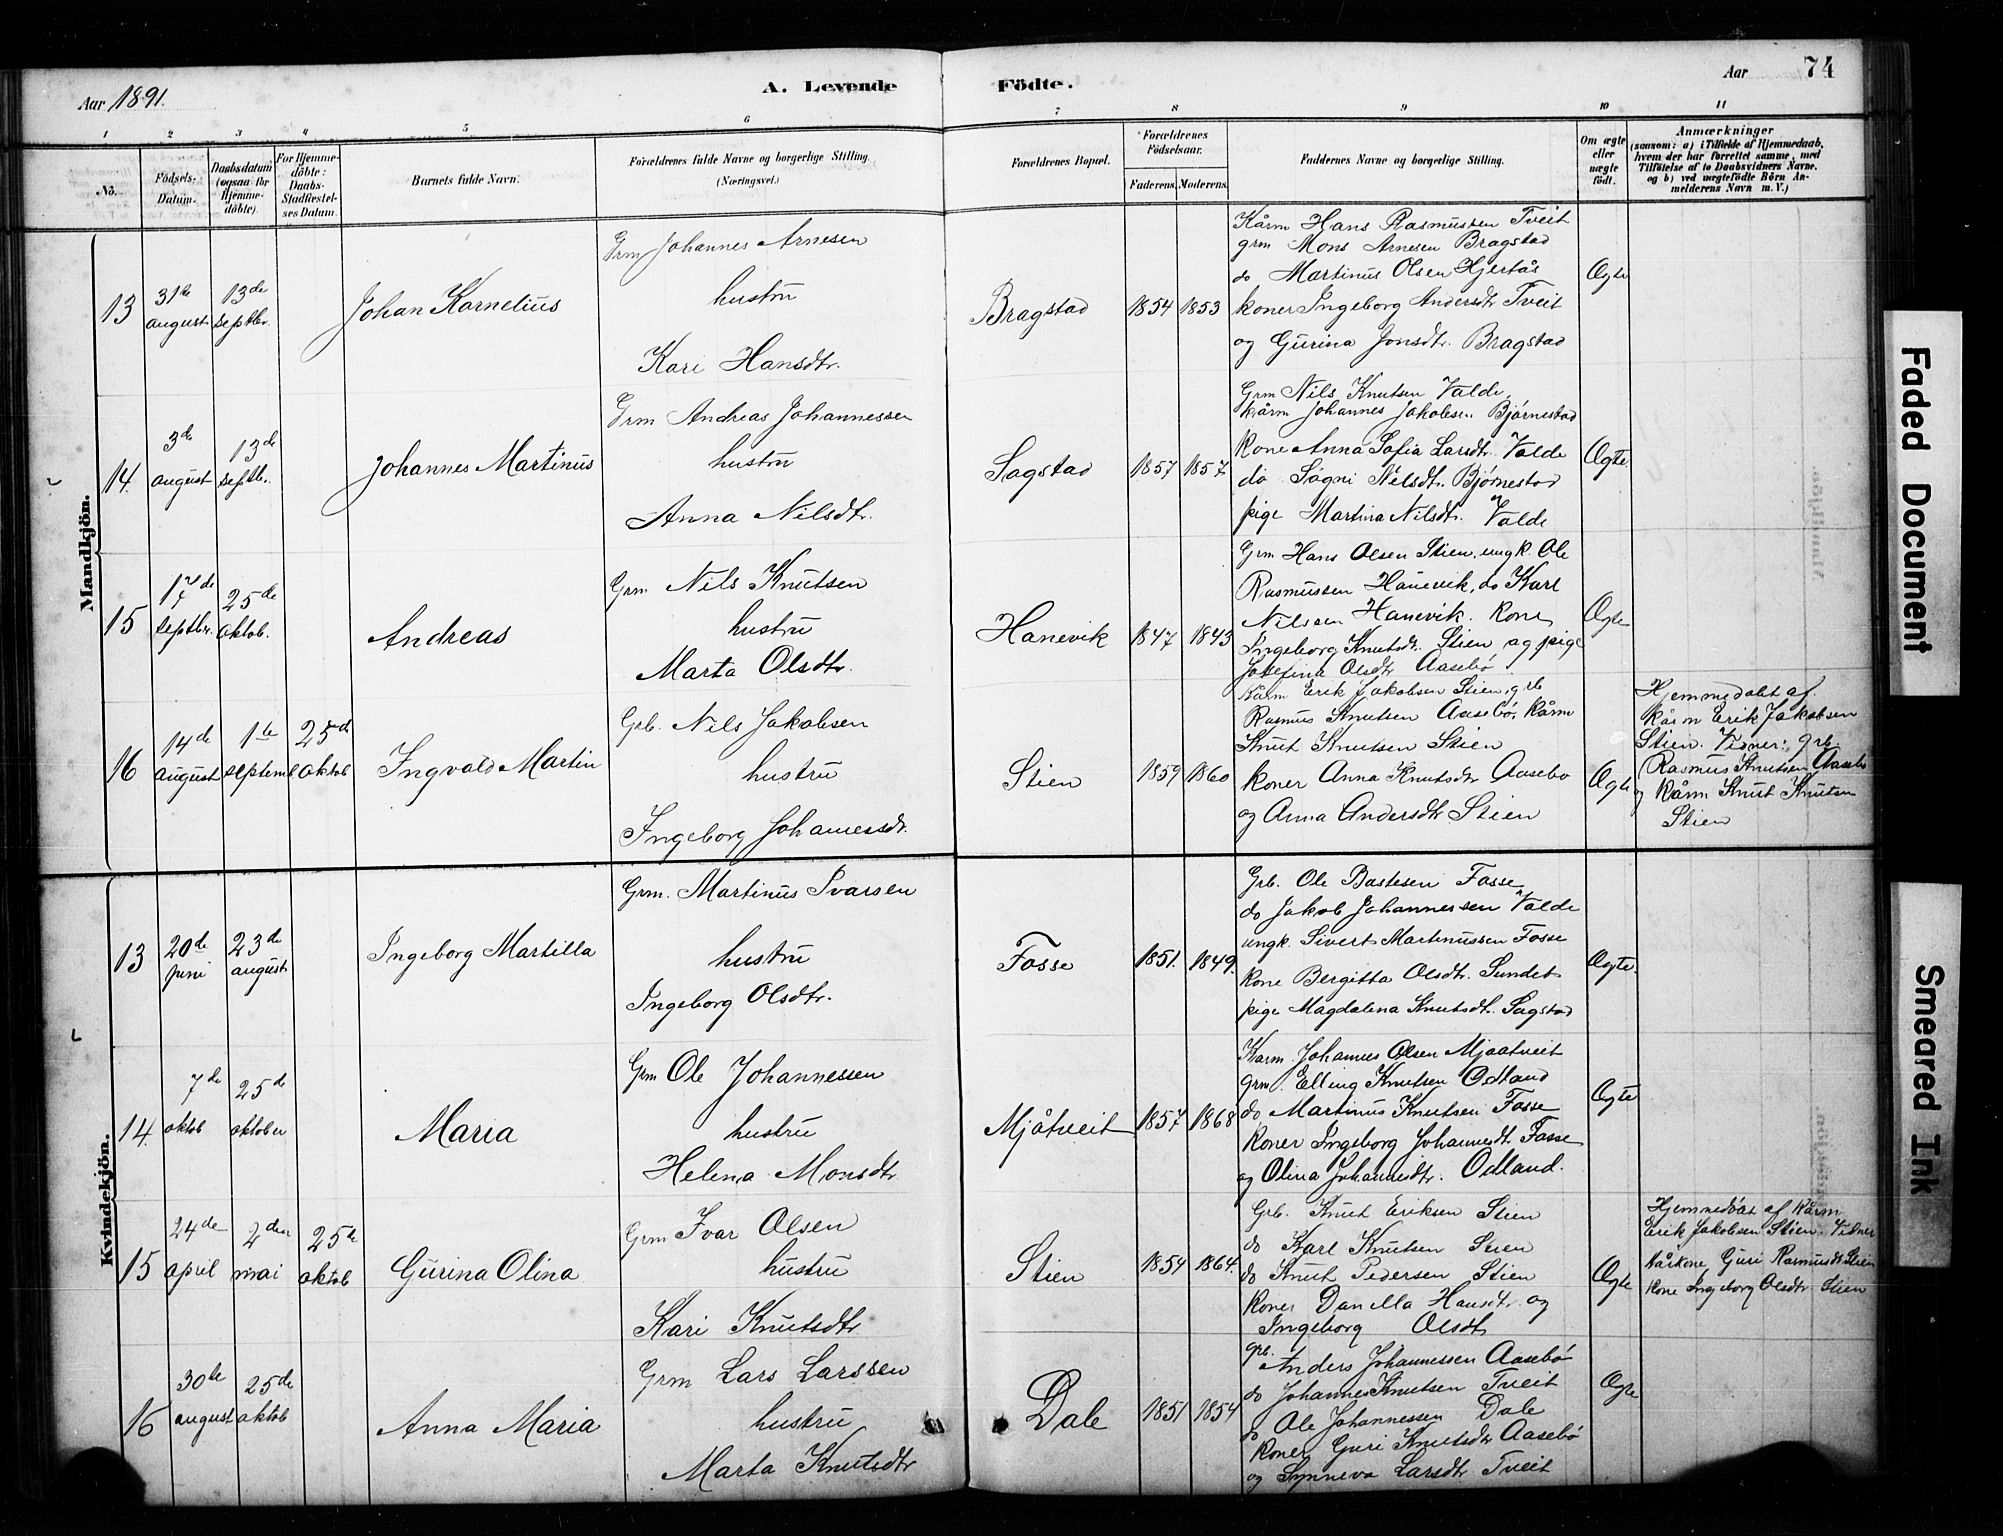 Aar 1891.
A. Levende Födte.
Aar 74
1 2 3 4 5 6 7 8 9 10 11
No.
Födsels-Datum.
Daabsdatum (ogsaa for Hjemmedöbte)
For Hjemmedöbte: Daabs-Stadfæstelses Datum.
Barnets fulde Navn.
Forældrenes fulde Navne og borgerlige Stilling.
(Næringsvei.)
Forældrenes Bopæl.
Forældrenes Födselsaar.
Faderens. Moderens.
Faddernes Navne og borgerlige Stilling.
Om ægte eller uægte födt.
Anmærkninger
(saasom: a) i Tilfælde af Hjemmedaab, hvem der har forrettet samme, med Tilföielse af to Daabsvidners Navne, og b) ved uægtefödte Börn Anmelderens Navn m. V.)
Mandkjön.
13
31te august
13de septbr.
Johan Kornelius
Grm Johannes Arnesen
hustru
Kari Hansdtr.
Bragstad
1854 1853
Kårm Hans Rasmussen Tveit
grm Mons Arnesen Bragstad
do Martinus Olsen Hjertås
koner Ingeborg Andersdtr Tveit
og Gurina Jonsdtr. Bragstad
Ægte
14.
3de august
13de septbr.
Johannes Martinus
Grm Andreas Johannessen
hustru
Anna Nilsdtr.
Sagstad
1857 1857
Grm Nils Knutsen Valde,
kårm Johannes Jakobsen Bjørnestad
kone Anna Sofia Larsdtr. Valde
do Søgni Nilsdtr. Bjørnestad
pige Martina Nilsdtr. Valde
Ægte.
15
17de septbr.
25de oktob.
Andreas
Grm Nils Knutsen
hustru
Marta Olsdtr.
Hanevik
1847 1843
Grm Hans Olsen Stien, ungk. Ole
Rasmussen Hanevik, do Karl
Nilssen Hanevik. Kone
Ingeborg Knutsdtr. Stien og pige
Josefina Olsdtr Aasebø
Ægte
16
14de august
1te septemb
25de oktob
Ingvald Martin
Grb. Nils Jakobsen
hustru
Ingeborg Johannesdr.
Stien
1859 1860
Kårm Erik Jakobsen Stien, grb
Rasmus Knutsen Aasebø, Kårm
Knut Knutsen Stien
koner Anna Knutsdtr Aasebø
og Anna Andersdtr Stien
Ægte
Hjemmedøbt af
kårm Erik Jakobsen
Stien. Vidner: grb
Rasmus Knutsen Aasebø
og Kårm Knut Knutsen
Stien
Kvindekjön.
13
20de juni
23de august
Ingeborg Martilla
Grm. Martinus Ivarsen
hustru
Ingeborg Olsdtr.
Fosse
1851. 1849.
Grb. Ole Bastesen Fosse
do Jakob Johannessen Valde
ungk. Sivert Martinussen Fosse
kone Bergitta Olsdtr. Sundet
pige Magdalena Knutsdtr. Sagstad
Ægte.
14.
7de oktob
25de oktober
Maria
Grm Ole Johannessen
hustru
Helena Monsdtr.
Mjåtveit
1857 1868
Kårm. Johannes Olsen Mjaatveit
grm. Elling Knutsen Odland
do Martinus Knutsen Fosse
koner Ingeborg Johannesdt. Fosse
og Olina Johannesdtr. Odland.
Ægte
15
24de april
2den mai
25de oktob
Gurina Olina
Grm Ivar Olsen
hustru
Kari Knutsdtr
Stien
1854 1864.
Grb. Knut Eriksen Stien
do Karl Knutsen Stien
do Knut Pedersen Stien
koner Danella Hansdtr. og
Ingeborg Olsdtr
Ægte
Hjemmedøbt af kårm
Erik Jakobsen Stien. Vidner
kårkone Guri Rasmusdt Stien
kone Ingeborg Olsdtr. Stien
16
30te august
25de oktob
Anna Maria
Grm Lars Larssen
hustru
Marta Knutsdtr
Dale
1851 1854
grb. Anders Johannessen Aasebø
do Johannes Knutsen Tveit
do Ole Johannessen Dale
koner Guri Knutsdtr Aasebø
og Synneva Larsdtr Tveit
Ægte
Faded Document
Smeared Ink